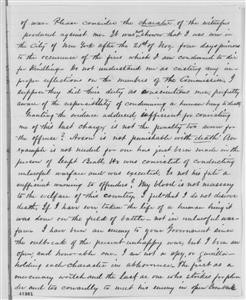 of war. Please consider the character of the witnesses
produced against me. It was shown that I was in
the City of New York after the 25th of Nov. four days previous
to the occurence of the fires which I am condemned to die
for kindling. Do not understand me as casting any im-
proper reflections on the members of the Commission, I
suppose they did their duty as conscientious men perfectly
aware of the responsibility of condemning a human being to death
Granting the evidence adduced sufficient for convicting
me of this last charge is not the penalty too severe for
the offence? Arson is not punishable with death. An
example is not needed for one has just been made in the
person of Capt Beall. He was convicted of conducting
unlawful warfare and was executed. Is not his fate a
sufficient warning to offenders? My blood is not necessary
to the welfare of this country. I feel that I do not deserve
death. If I have ever taken the life of a human being it
was done on the field of battle - not in unlawful war-
fare. I have been an enemy to your Government since
the outbreak of the present unhappy war but I been an
open and honorable one. I am not a spy, or guerilla
holding such character in abhorrence. The first as a
mercenary wretch and the last as one who strikes for plun-
der and too cowardly to meet his enemy in open